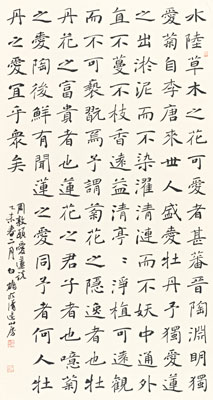 水陸草木之花可愛者甚蕃晉陶淵明獨
愛菊自李唐來世人盛愛牡丹予獨愛蓮
之出淤泥而不染濯清漣而不妖中通外
直不蔓不枝香遠益清亭亭淨植可遠觀
而不可褻翫焉予謂菊花之隱逸者也牡
丹花之富貴者也蓮花之君子者也噫菊
之愛陶後鮮有聞蓮之愛同予者何人牡
丹之愛宜乎衆矣
周敦頤愛蓮說
乙未春二月